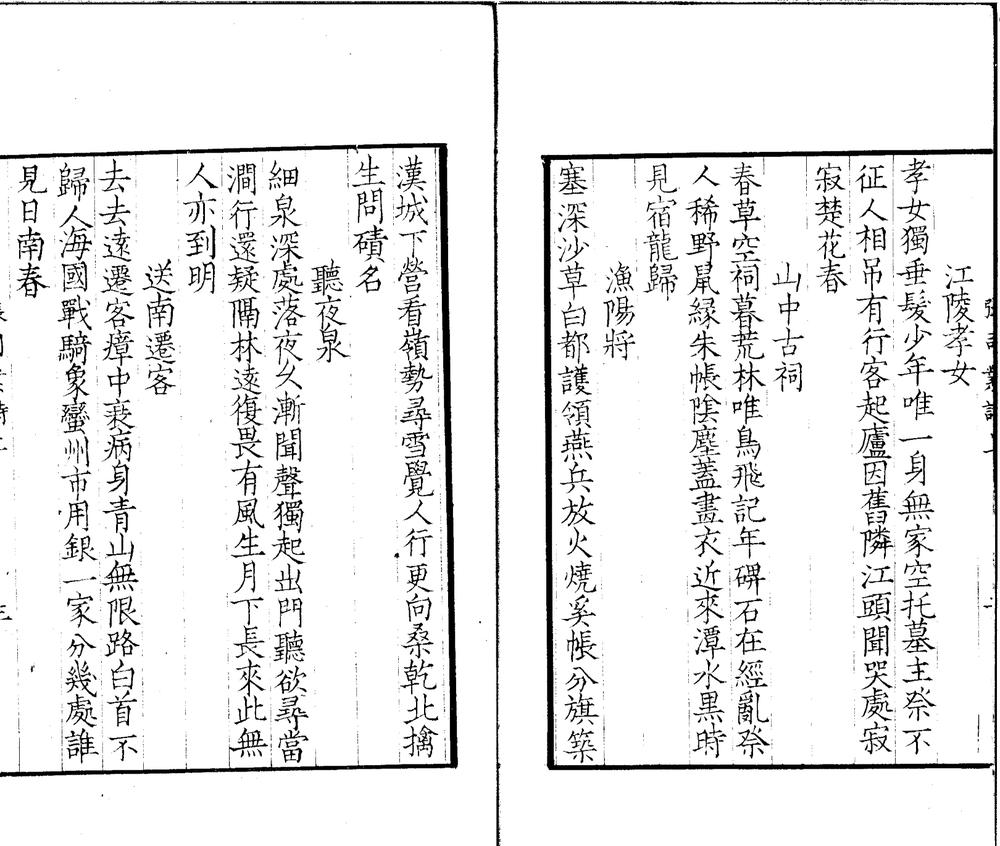 江陵孝女
孝女獨垂髮少年唯一身無家空托墓主祭不
征人相吊有行客起廬因舊隣江頭聞哭處寂
寂楚花春
山中古祠
春草空祠暮荒林唯鳥飛記年碑石在經亂祭
人稀野鼠緣朱帳陰塵蓋畫衣近來潭水黑時
見宿龍歸
漁陽將
塞深沙草白都護領燕兵放火燒奚帳分旗築
漢城下營看嶺勢尋雪覺人行更向桑乾北擒
生問磧名
聽夜泉
細泉深處落夜久漸聞聲獨起出門聽欲尋當
澗行還疑隔林遠復畏有風生月下長來此無
人亦到明
送南遷客
去去遠遷客瘴中衰病身青山無限路白首不
歸人海國戰騎象蠻州市用銀一家分幾處誰
見日南春